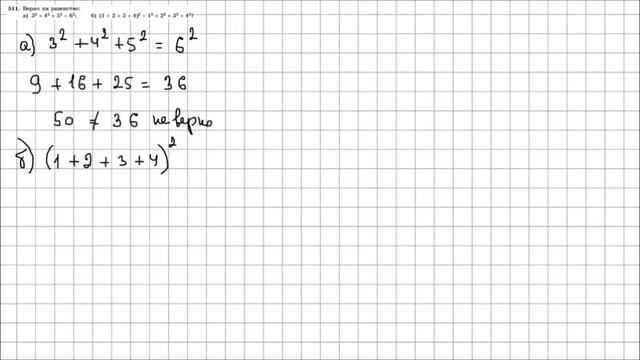 511. Верно ли равенство:
а) 3² + 4² + 5² = 6²; б) (1 + 2 + 3 + 4)² = 1² + 2² + 3² + 4²?
а) 3² + 4² + 5² = 6²
9 + 16 + 25 = 36
50 ≠ 36 не верно
б) (1 + 2 + 3 + 4)²